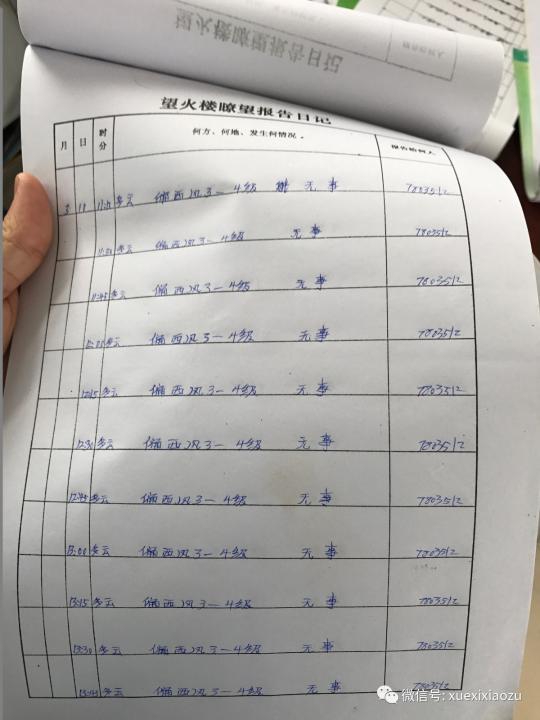 望火楼瞭望报告日记
望火楼瞭望报告日记
月 日 时分 何方、何地、发生何情况。 报告给何人
3 多云 偏西风3-4级 无事 7803512
多云 偏西风3-4级 无事 7803512
11:45 多云 偏西风3-4级 无事 7803512
12:00 多云 偏西风3-4级 无事 7803512
12:15 多云 偏西风3-4级 无事 7803512
12:30 多云 偏西风3-4级 无事 7803512
12:45 多云 偏西风3-4级 无事 7803512
13:00 多云 偏西风3-4级 无事 7803512
13:15 多云 偏西风3-4级 无事 7803512
13:30 多云 偏西风3-4级 无事 7803512
13:45 多云 偏西风3-4级 无事 7803512
微信号: xuexixiaozu